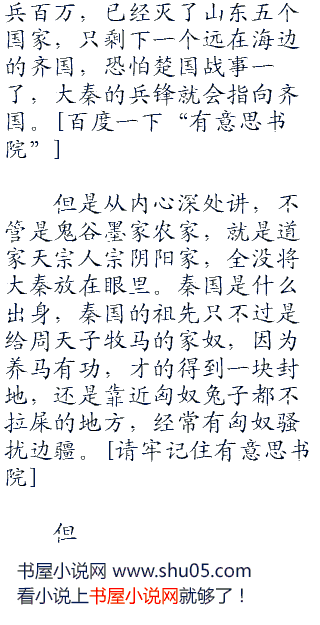 兵百万，已经灭了山东五个
国家，只剩下一个远在海边
的齐国，恐怕楚国战事一
了，大秦的兵锋就会指向齐
国。[百度一下“有意思书
院”]
但是从内心深处讲，不
管是鬼谷墨家农家，就是道
家天宗人宗阴阳家，全没将
大秦放在眼里。秦国是什么
出身，秦国的祖先只不过是
给周天子牧马的家奴，因为
养马有功，才的得到一块封
地，还是靠近匈奴兔子都不
拉屎的地方，经常有匈奴骚
扰边疆。[请牢记住有意思书
院]
但
书屋小说网 www.shu05.com
看小说上书屋小说网就够了！